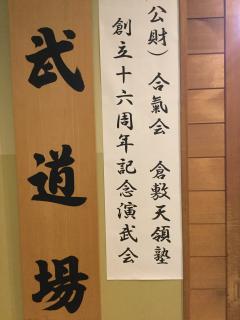 公財）合氣会　倉敷天領塾
創立十六周年記念演武会
武道場